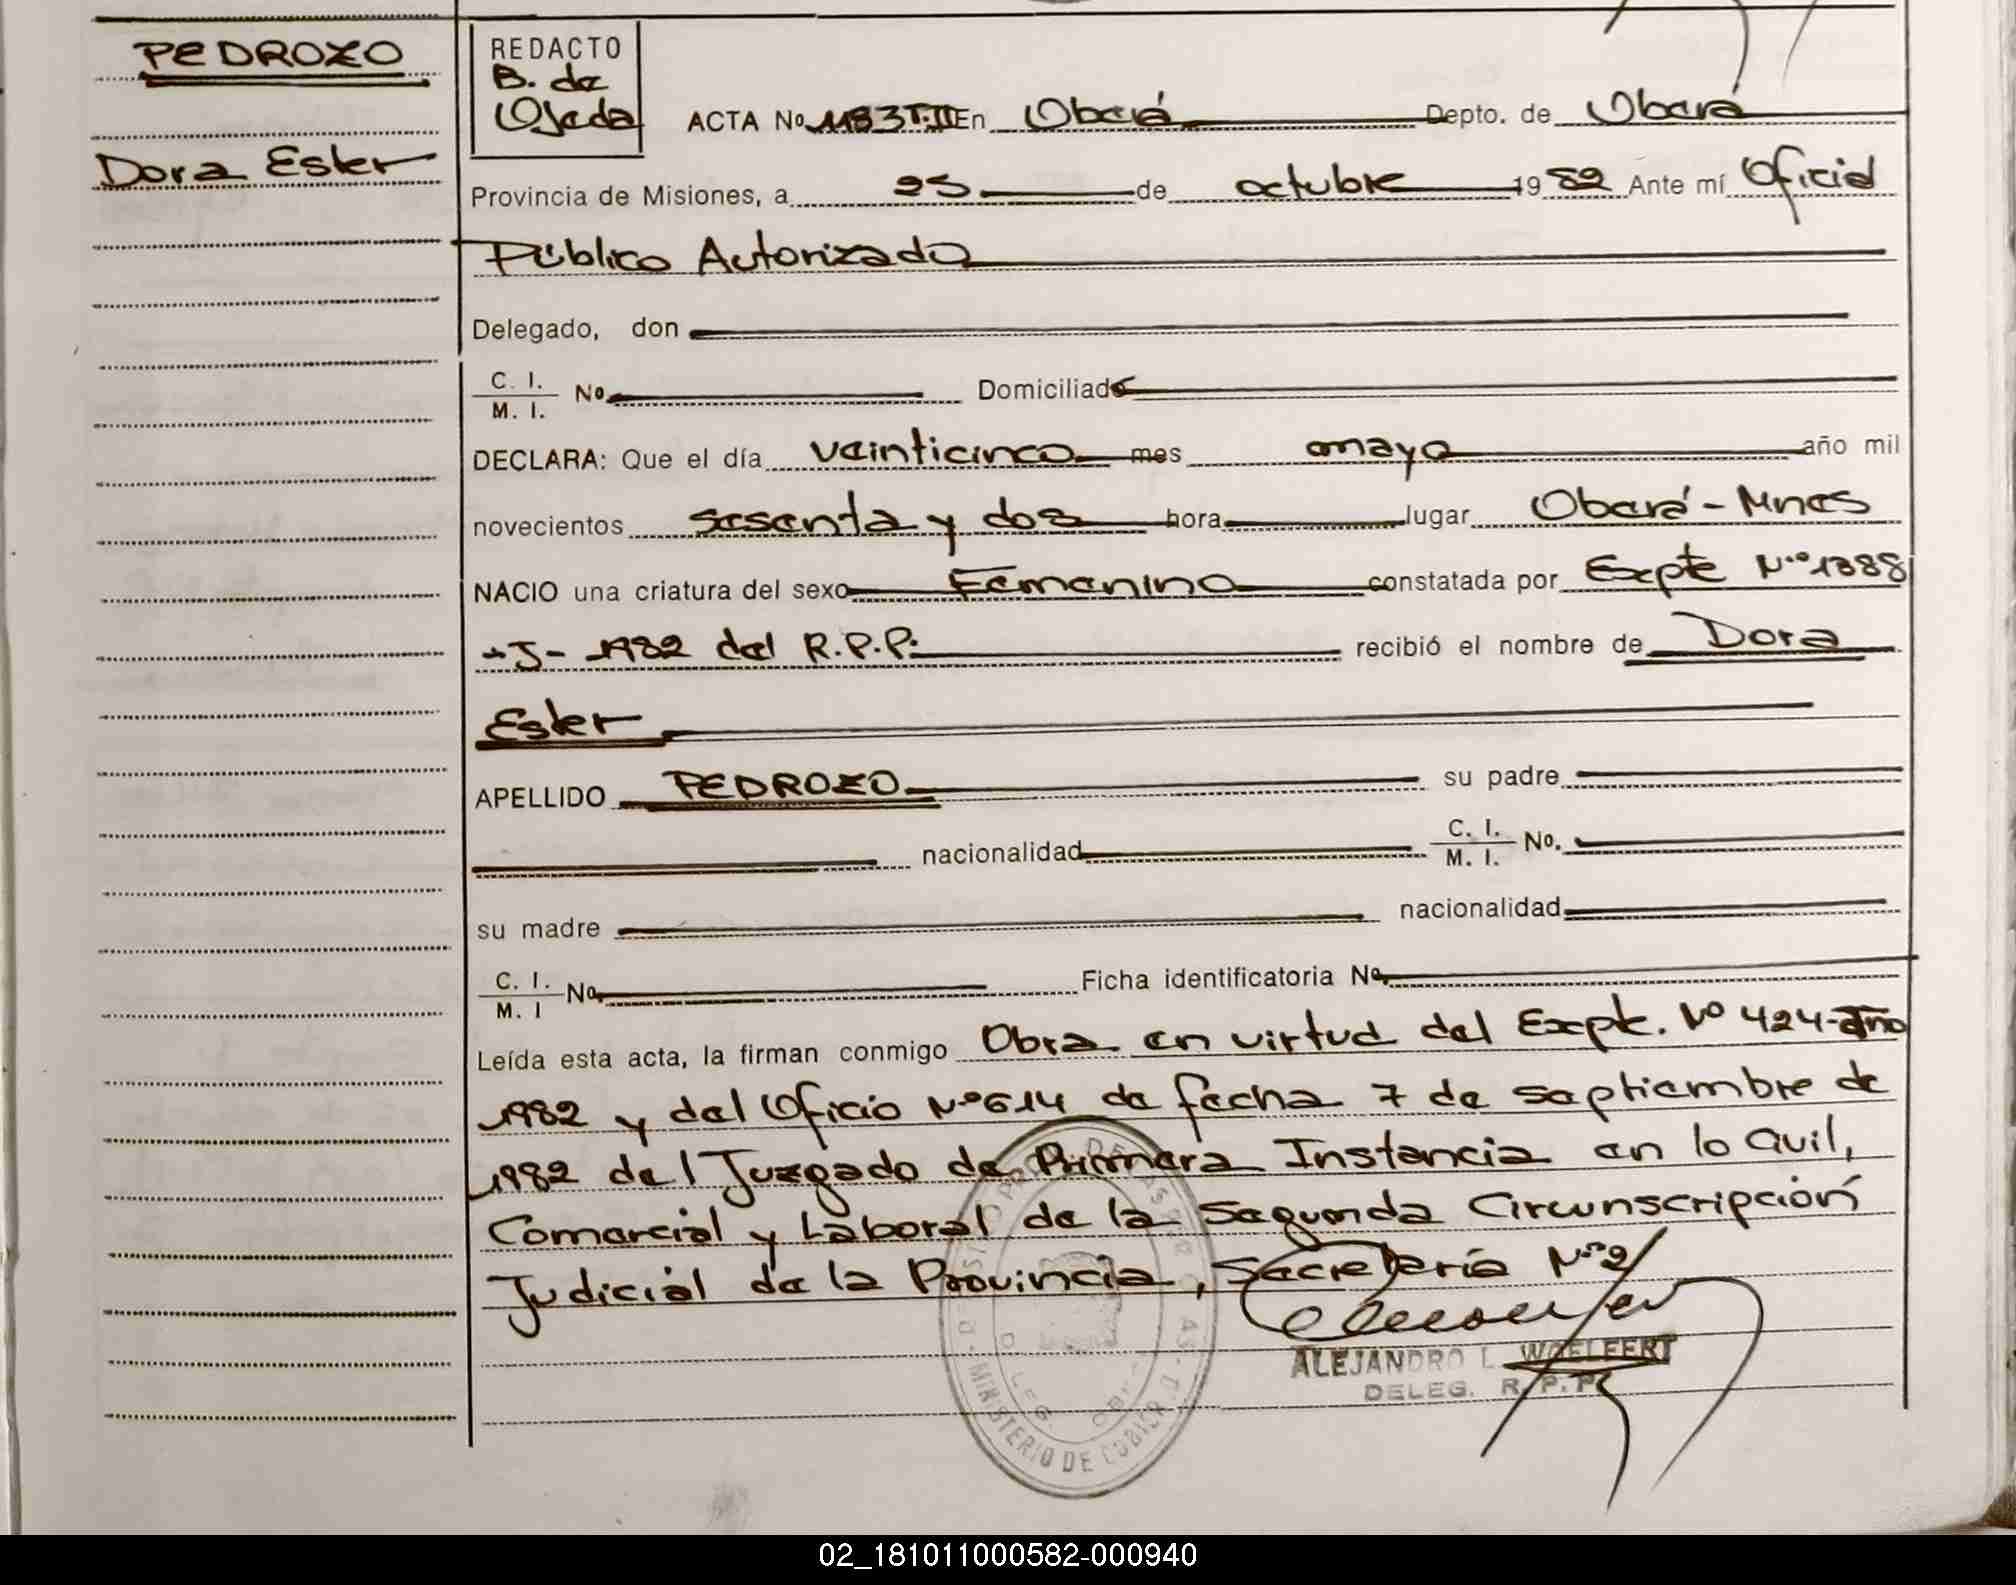 PEDROZO
Dora Ester
REDACTO
B. de
Ojeda
ACTA No 1183 T.II En Oberá Depto. de Oberá
Provincia de Misiones, a 25 de octubre 1982 Ante mí Oficial
Público Autorizado
Delegado, don
C. I.
M. I. No Domiciliado
DECLARA: Que el día veinticinco mes mayo año mil
novecientos sesenta y dos hora lugar Oberá - Mnes
NACIO una criatura del sexo Femenino constatada por Expte Nº 1388
-J- 1982 del R.P.P. recibió el nombre de Dora
Ester
APELLIDO PEDROZO su padre
nacionalidad C. I.
M. I. No.
su madre nacionalidad
C. I.
M. I No. Ficha identificatoria No.
Leída esta acta, la firman conmigo Obra en virtud del Expte. Nº 424-Año
1982 y del Oficio Nº 614 de fecha 7 de septiembre de
1982 del Juzgado de Primera Instancia en lo Civil,
Comercial y Laboral de la Segunda Circunscripción
Judicial de la Provincia, Secretaría Nº 2
ALEJANDRO L. WOELFERT
DELEG. R.P.P.
MINISTERIO DE
02_181011000582-000940